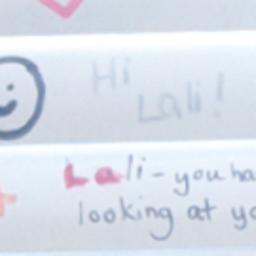 Hi
Lali!
Lali - you ha
looking at yo